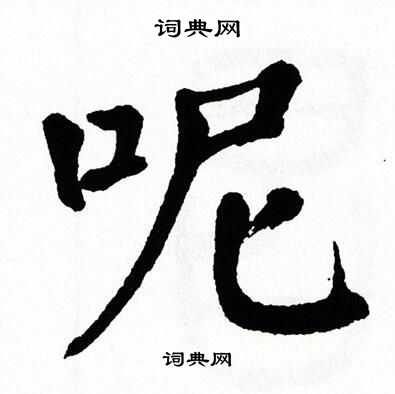 词典网
呢
词典网